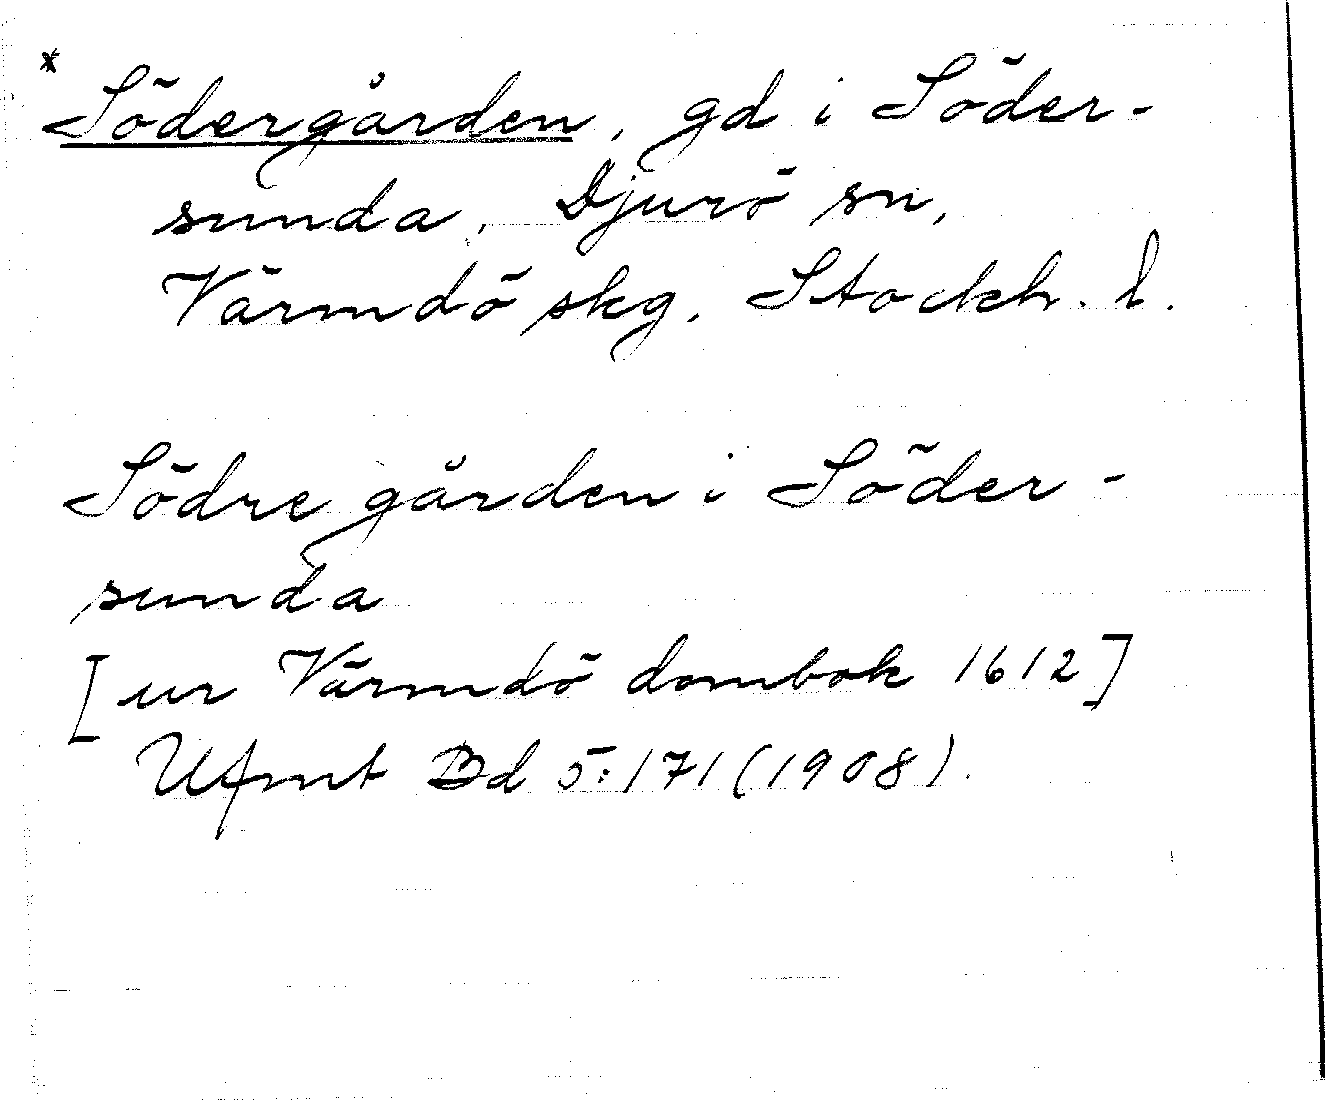 * Södergården, gd i Söder-
sunda, Djurö sn,
Värmdö skg, Stockh. l.
Södre gården i Söder-
sunda
[ur Värmdö dombok 1612]
Ufmt Bd 5:171 (1908).